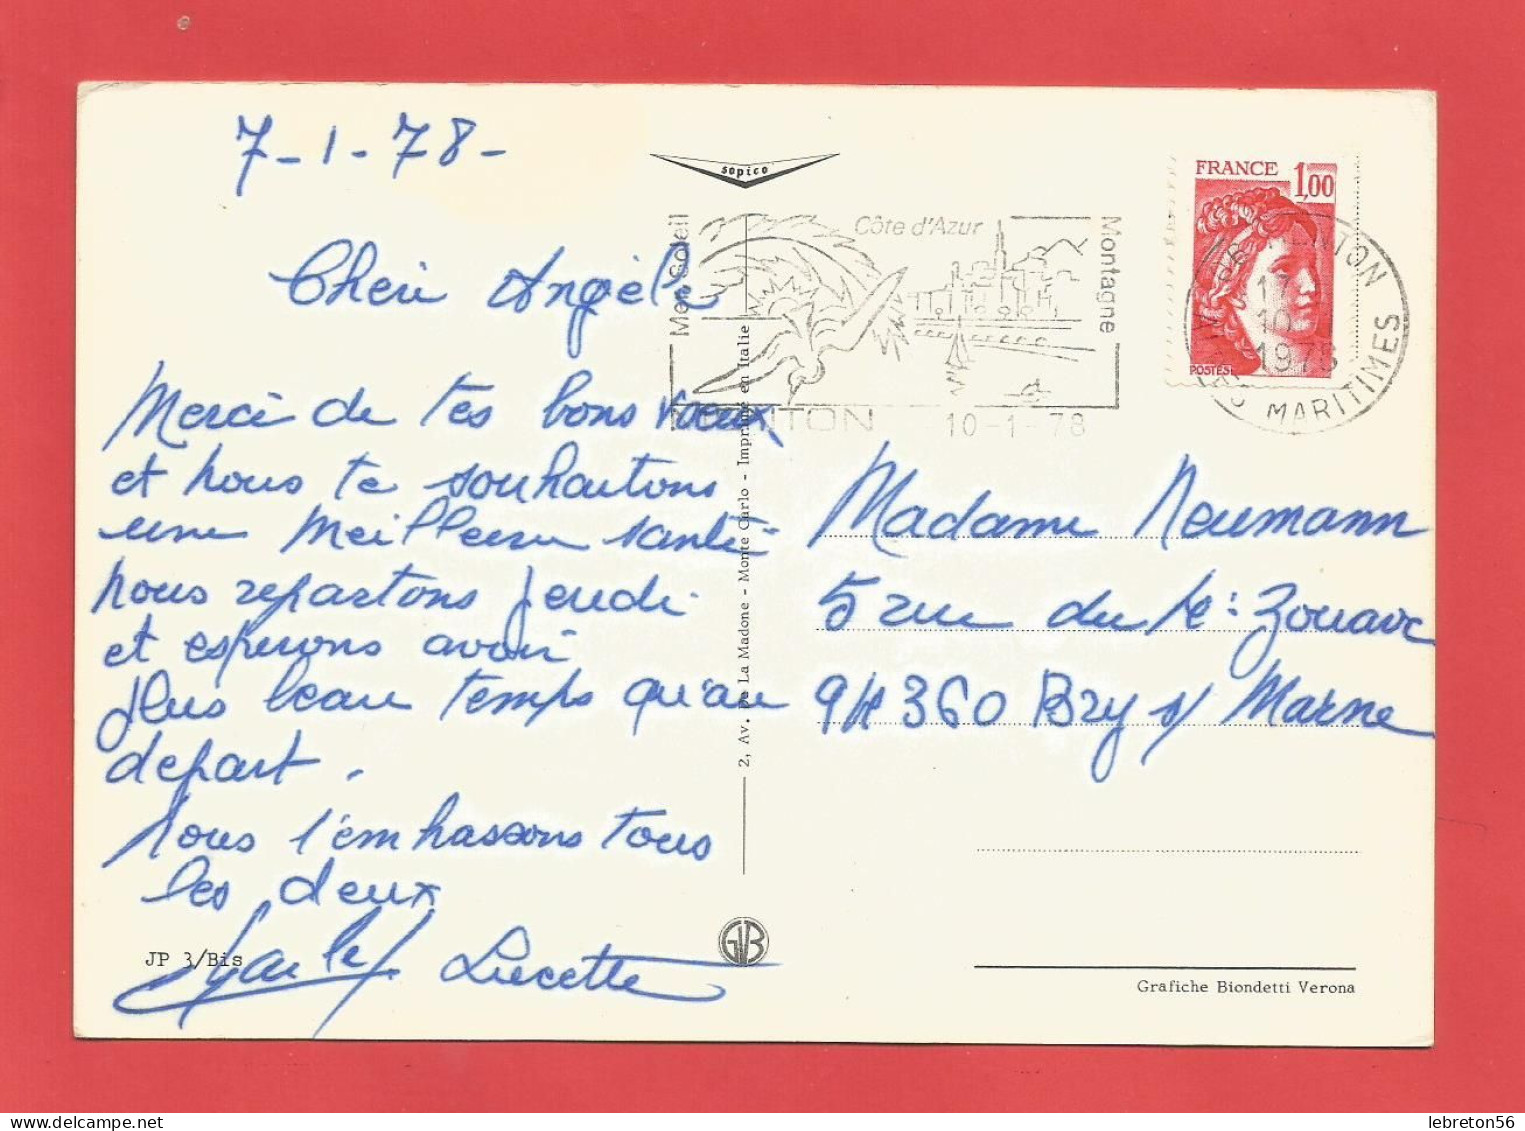 7-1-78-
Cheri Angèle
Merci de tes bons vœux
et nous te souhaitons
une meilleure santé
nous repartons jeudi
et esperons avoir
plus beau temps qu'au
depart.
Nous t'embrassons tous
les deux
Lucette
JP 3/Bis
sopico
Mer Soleil
Côte d'Azur
Montagne
MENTON
10-1-78
2, Av. De La Madone - Monte Carlo - Imprimé en Italie
FRANCE 1,00
POSTES
06 MENTON
17
10
1978
ALPES MARITIMES
Madame Neumann
5 rue du 4e: Zouave
94360 Bry s/ Marne
GB
Grafiche Biondetti Verona
lebreton56